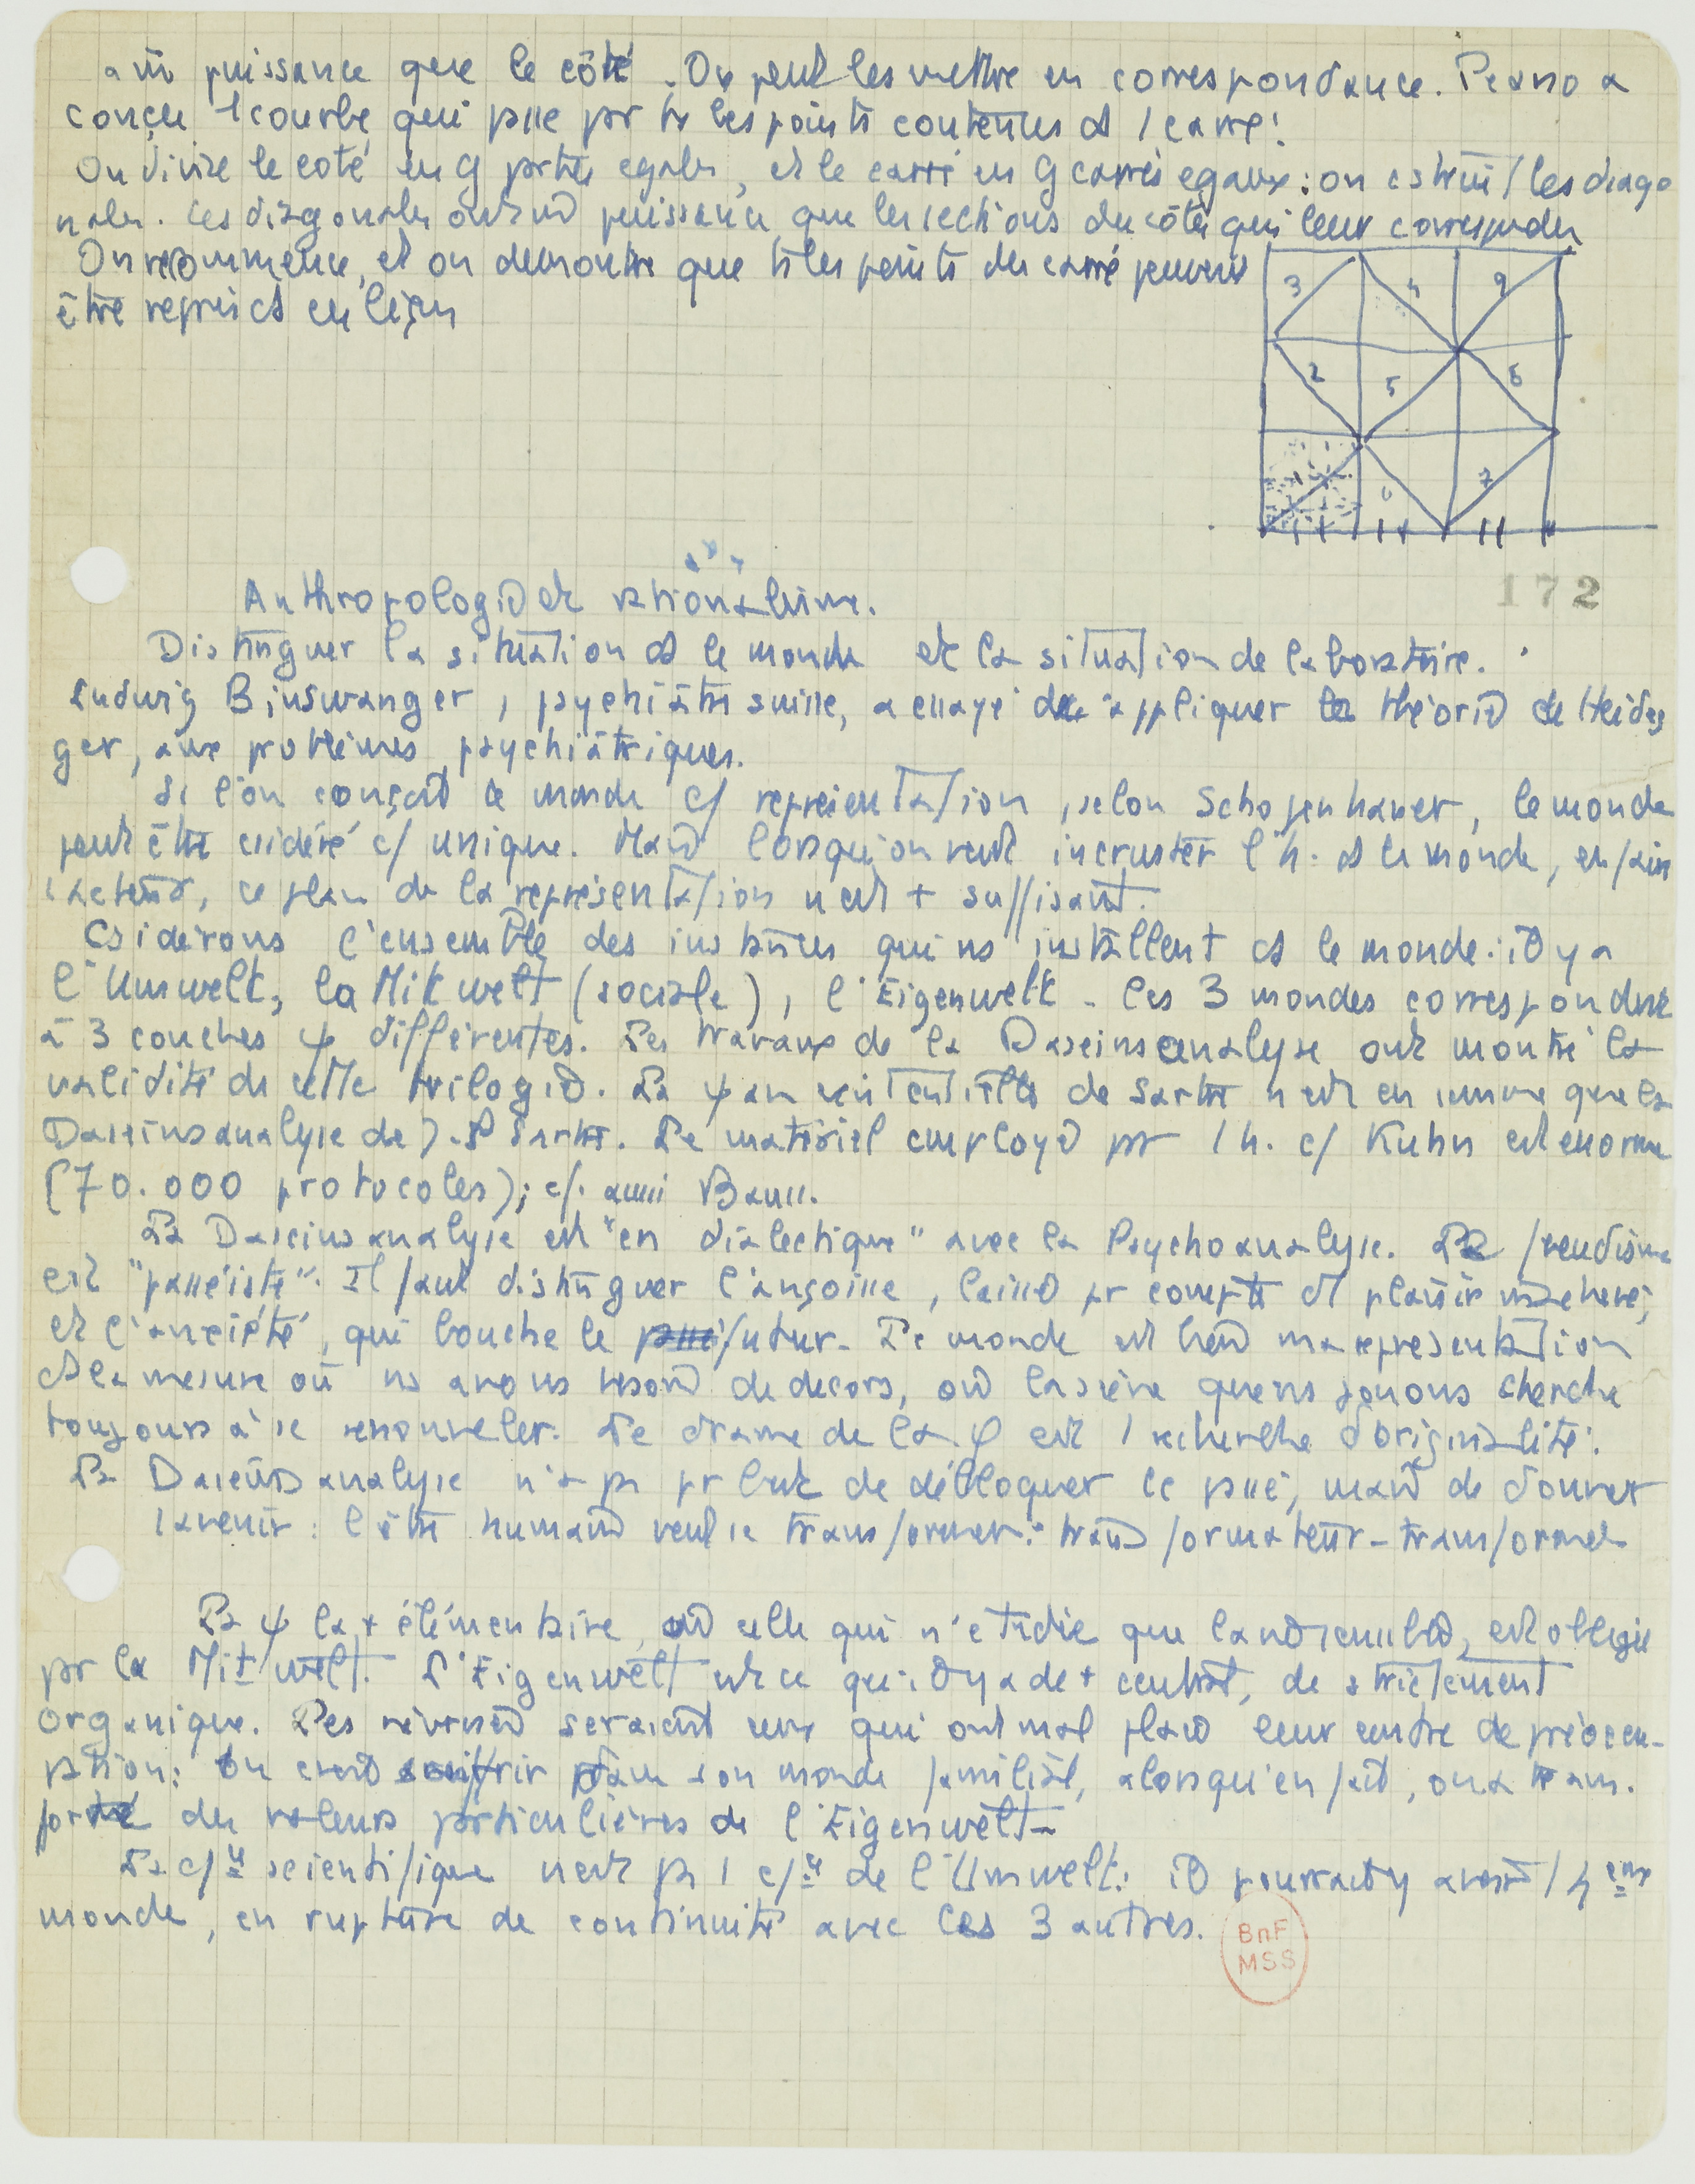 a m̄ puissance que le côté. On peut les mettre en correspondance. Peano a
conçu 1 courbe qui passe par ts les points contenus ds 1 carré.
On divise le coté en 9 parties egales, et le carré en 9 carrés egaux : on cstruit les diago
nales. Ces diagonales ont m̄ puissance que les sections du côté qui leur correspondent
On recommence, et on demontre que ts les points du carré peuvent
être repris ds
3 4 9
2 5 8
6 7
Anthropologie et rationalisme.
172
Distinguer la situation ds le monde et la situation de laboratoire.
Ludwig Binswanger, psychiatre suisse, a essayé d'appliquer la théorie de Heideg
ger, aux problèmes psychiatriques.
Si l'on conçoit le monde c/ représentation, selon Schopenhauer, le monde
peut être csidéré c/ unique. Mais lorsqu'on veut incruster l'h. ds le monde, en
ce plan de la représentation n'est + suffisant.
Csiderons l'ensemble des instances qui ns installent ds le monde : il y a
l'Umwelt, la Mitwelt (sociale), l'Eigenwelt. Ces 3 mondes correspondent
à 3 couches ψ différentes. Les travaux de la Daseinsanalyse ont montré la
validité de cette trilogie. La ψan existentielle de Sartre n'est en somme que la
Daseinsanalyse de J.P Sartre. Le matériel employé par 1 h. c/ Kuhn est enorme
(70.000 protocoles) ; cf. aussi Bauss.
La Daseinsanalyse est "en dialectique" avec la Psychoanalyse. Le freudisme
est "passéiste". Il faut distinguer l'angoisse, laissé pr compte d'1 plaisir inachevé,
et l'anxiété, qui bouche le futur. Le monde est bien ma représentation
ds la mesure où ns avons besoin de decors, où la scène que ns jouons cherche
toujours à se renouveler. Le drame de la φ est 1 recherche d'originalité.
La Daseinsanalyse n'a pas pr but de débloquer le passé, mais de donner
l'avenir : l'être humain veut se transformer : transformateur - transformé
La ψ la + élémentaire, celle qui n'étudie que la est obligée
par la Mitwelt. L'Eigenwelt est ce qu'il y a de + central, de strictement
organique. Les névrosés seraient ceux qui ont mal placé leur centre de préoccu-
pation : on croit souffrir dans son monde familial, alors qu'en fait, on a trans.
formé des valeurs particulières de l'Eigenwelt.
La c/ce scientifique n'est pas 1 c/ce de l'Umwelt : il pourrait y avoir 1 4ème
monde, en rupture de continuité avec les 3 autres.
BnF
MSS